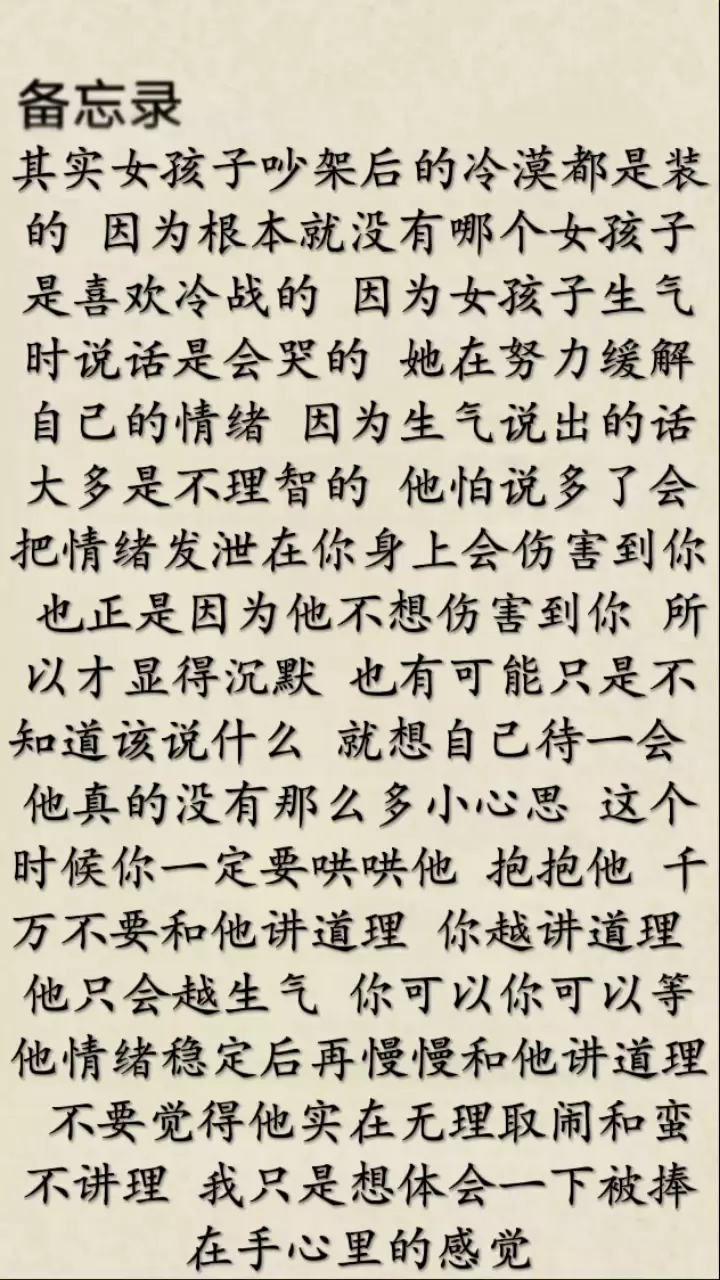 备忘录
其实女孩子吵架后的冷漠都是装
的 因为根本就没有哪个女孩子
是喜欢冷战的 因为女孩子生气
时说话是会哭的 她在努力缓解
自己的情绪 因为生气说出的话
大多是不理智的 他怕说多了会
把情绪发泄在你身上会伤害到你
也正是因为他不想伤害到你 所
以才显得沉默 也有可能只是不
知道该说什么 就想自己待一会
他真的没有那么多小心思 这个
时候你一定要哄哄他 抱抱他 千
万不要和他讲道理 你越讲道理
他只会越生气 你可以你可以等
他情绪稳定后再慢慢和他讲道理
不要觉得他实在无理取闹和蛮
不讲理 我只是想体会一下被捧
在手心里的感觉